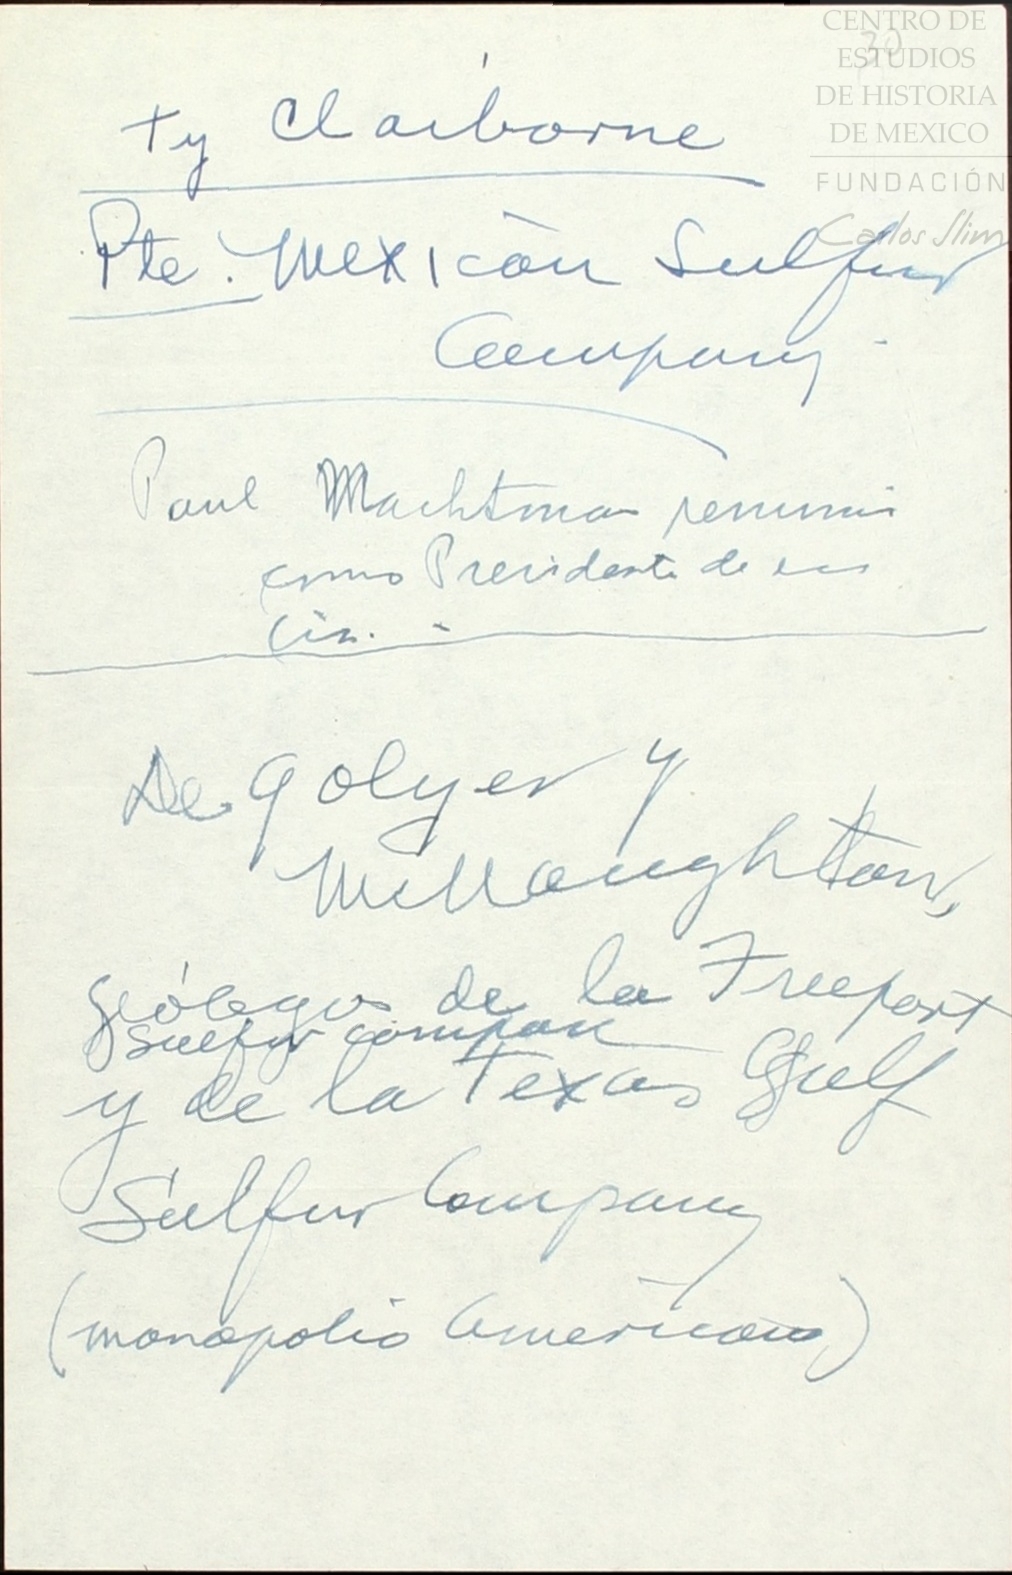 CENTRO DE
ESTUDIOS
DE HISTORIA
DE MEXICO
FUNDACIÓN
Carlos Slim
30
Ty Claiborne
Pte. Mexican Sulfur
Company.
Paul Machtman renuncia
como Presidente de esa
Cía.
De golyer y
McNaughton,
geólogos de la Freeport
Sulfur Company
y de la Texas Gulf
Sulfur Company
(monopolio Americano)